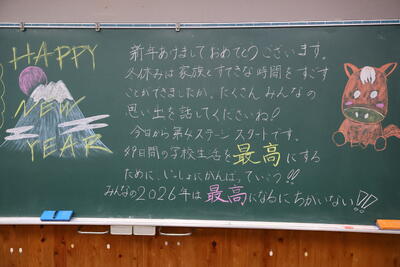 HAPPY
NEW
YEAR
新年あけましておめでとうございます。
冬休みは家族とすてきな時間をすごす
ことができましたか。たくさんみんなの
思い出を話してくださいね!
今日から第4ステージスタートです。
49日間の学校生活を最高にする
ために、いっしょにがんばっていこう!!
みんなの2026年は最高になるにちがいない!!